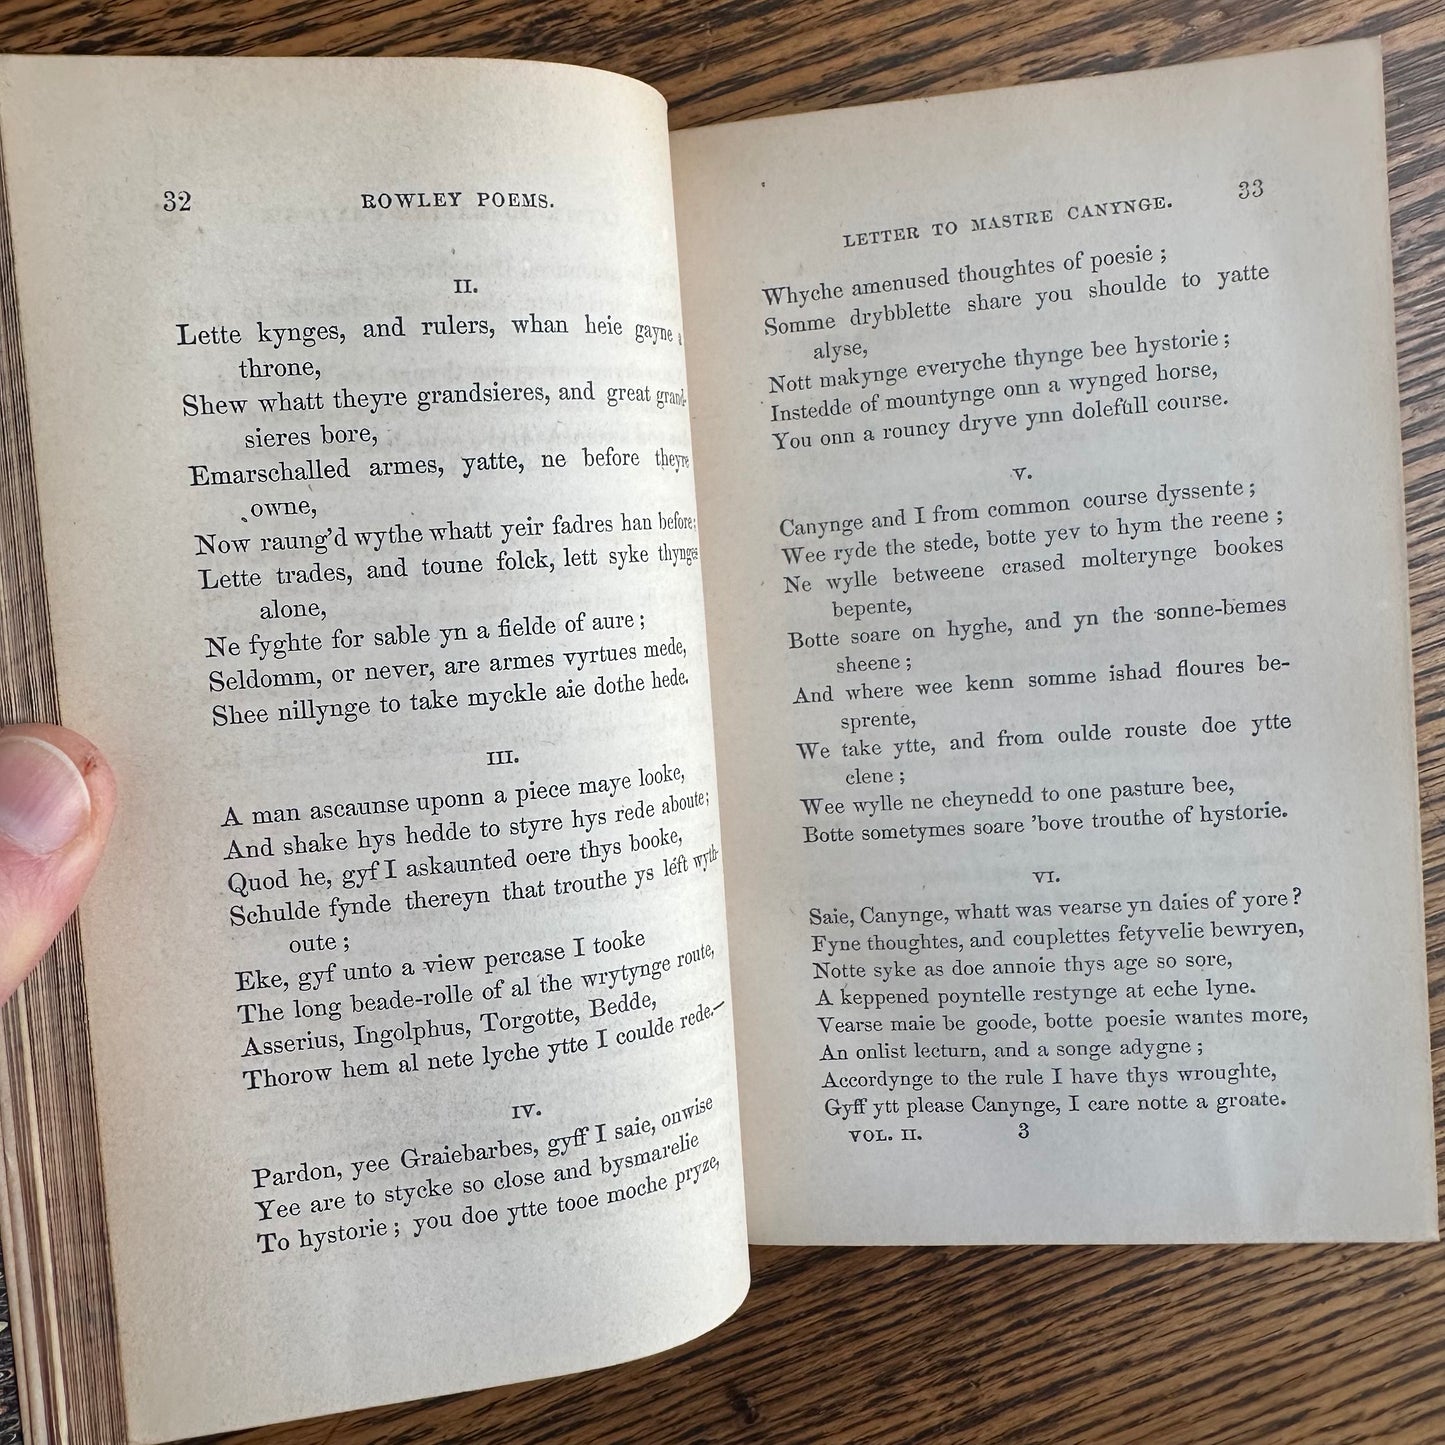 32
ROWLEY POEMS.
II.
Lette kynges, and rulers, whan heie gayne a
throne,
Shew whatt theyre grandsieres, and great grand-
sieres bore,
Emarschalled armes, yatte, ne before theyre
owne,
Now raung'd wythe whatt yeir fadres han before;
Lette trades, and toune folck, lett syke thynges
alone,
Ne fyghte for sable yn a fielde of aure;
Seldomm, or never, are armes vyrtues mede,
Shee nillynge to take myckle aie dothe hede.
III.
A man ascaunse uponn a piece maye looke,
And shake hys hedde to styre hys rede aboute;
Quod he, gyf I askaunted oere thys booke,
Schulde fynde thereyn that trouthe ys left wyth-
oute;
Eke, gyf unto a view percase I tooke
The long beade-rolle of al the wrytynge route,
Asserius, Ingolphus, Torgotte, Bedde,
Thorow hem al nete lyche ytte I coulde rede.—
IV.
Pardon, yee Graiebarbes, gyff I saie, onwise
Yee are to stycke so close and bysmarelie
To hystorie; you doe ytte tooe moche pryze,
LETTER TO MASTRE CANYNGE.
33
Whyche amenused thoughtes of poesie;
Somme drybblette share you shoulde to yatte
alyse,
Nott makynge everyche thynge bee hystorie;
Instedde of mountynge onn a wynged horse,
You onn a rouncy dryve ynn dolefull course.
V.
Canynge and I from common course dyssente;
Wee ryde the stede, botte yev to hym the reene;
Ne wylle betweene crased molterynge bookes
bepente,
Botte soare on hyghe, and yn the sonne-bemes
sheene;
And where wee kenn somme ishad floures be-
sprente,
We take ytte, and from oulde rouste doe ytte
clene;
Wee wylle ne cheynedd to one pasture bee,
Botte sometymes soare 'bove trouthe of hystorie.
VI.
Saie, Canynge, whatt was vearse yn daies of yore?
Fyne thoughtes, and couplettes fetyvelie bewryen,
Notte syke as doe annoie thys age so sore,
A keppened poyntelle restynge at eche lyne.
Vearse maie be goode, botte poesie wantes more,
An onlist lecturn, and a songe adygne;
Accordynge to the rule I have thys wroughte,
Gyff ytt please Canynge, I care notte a groate.
VOL. II.
3